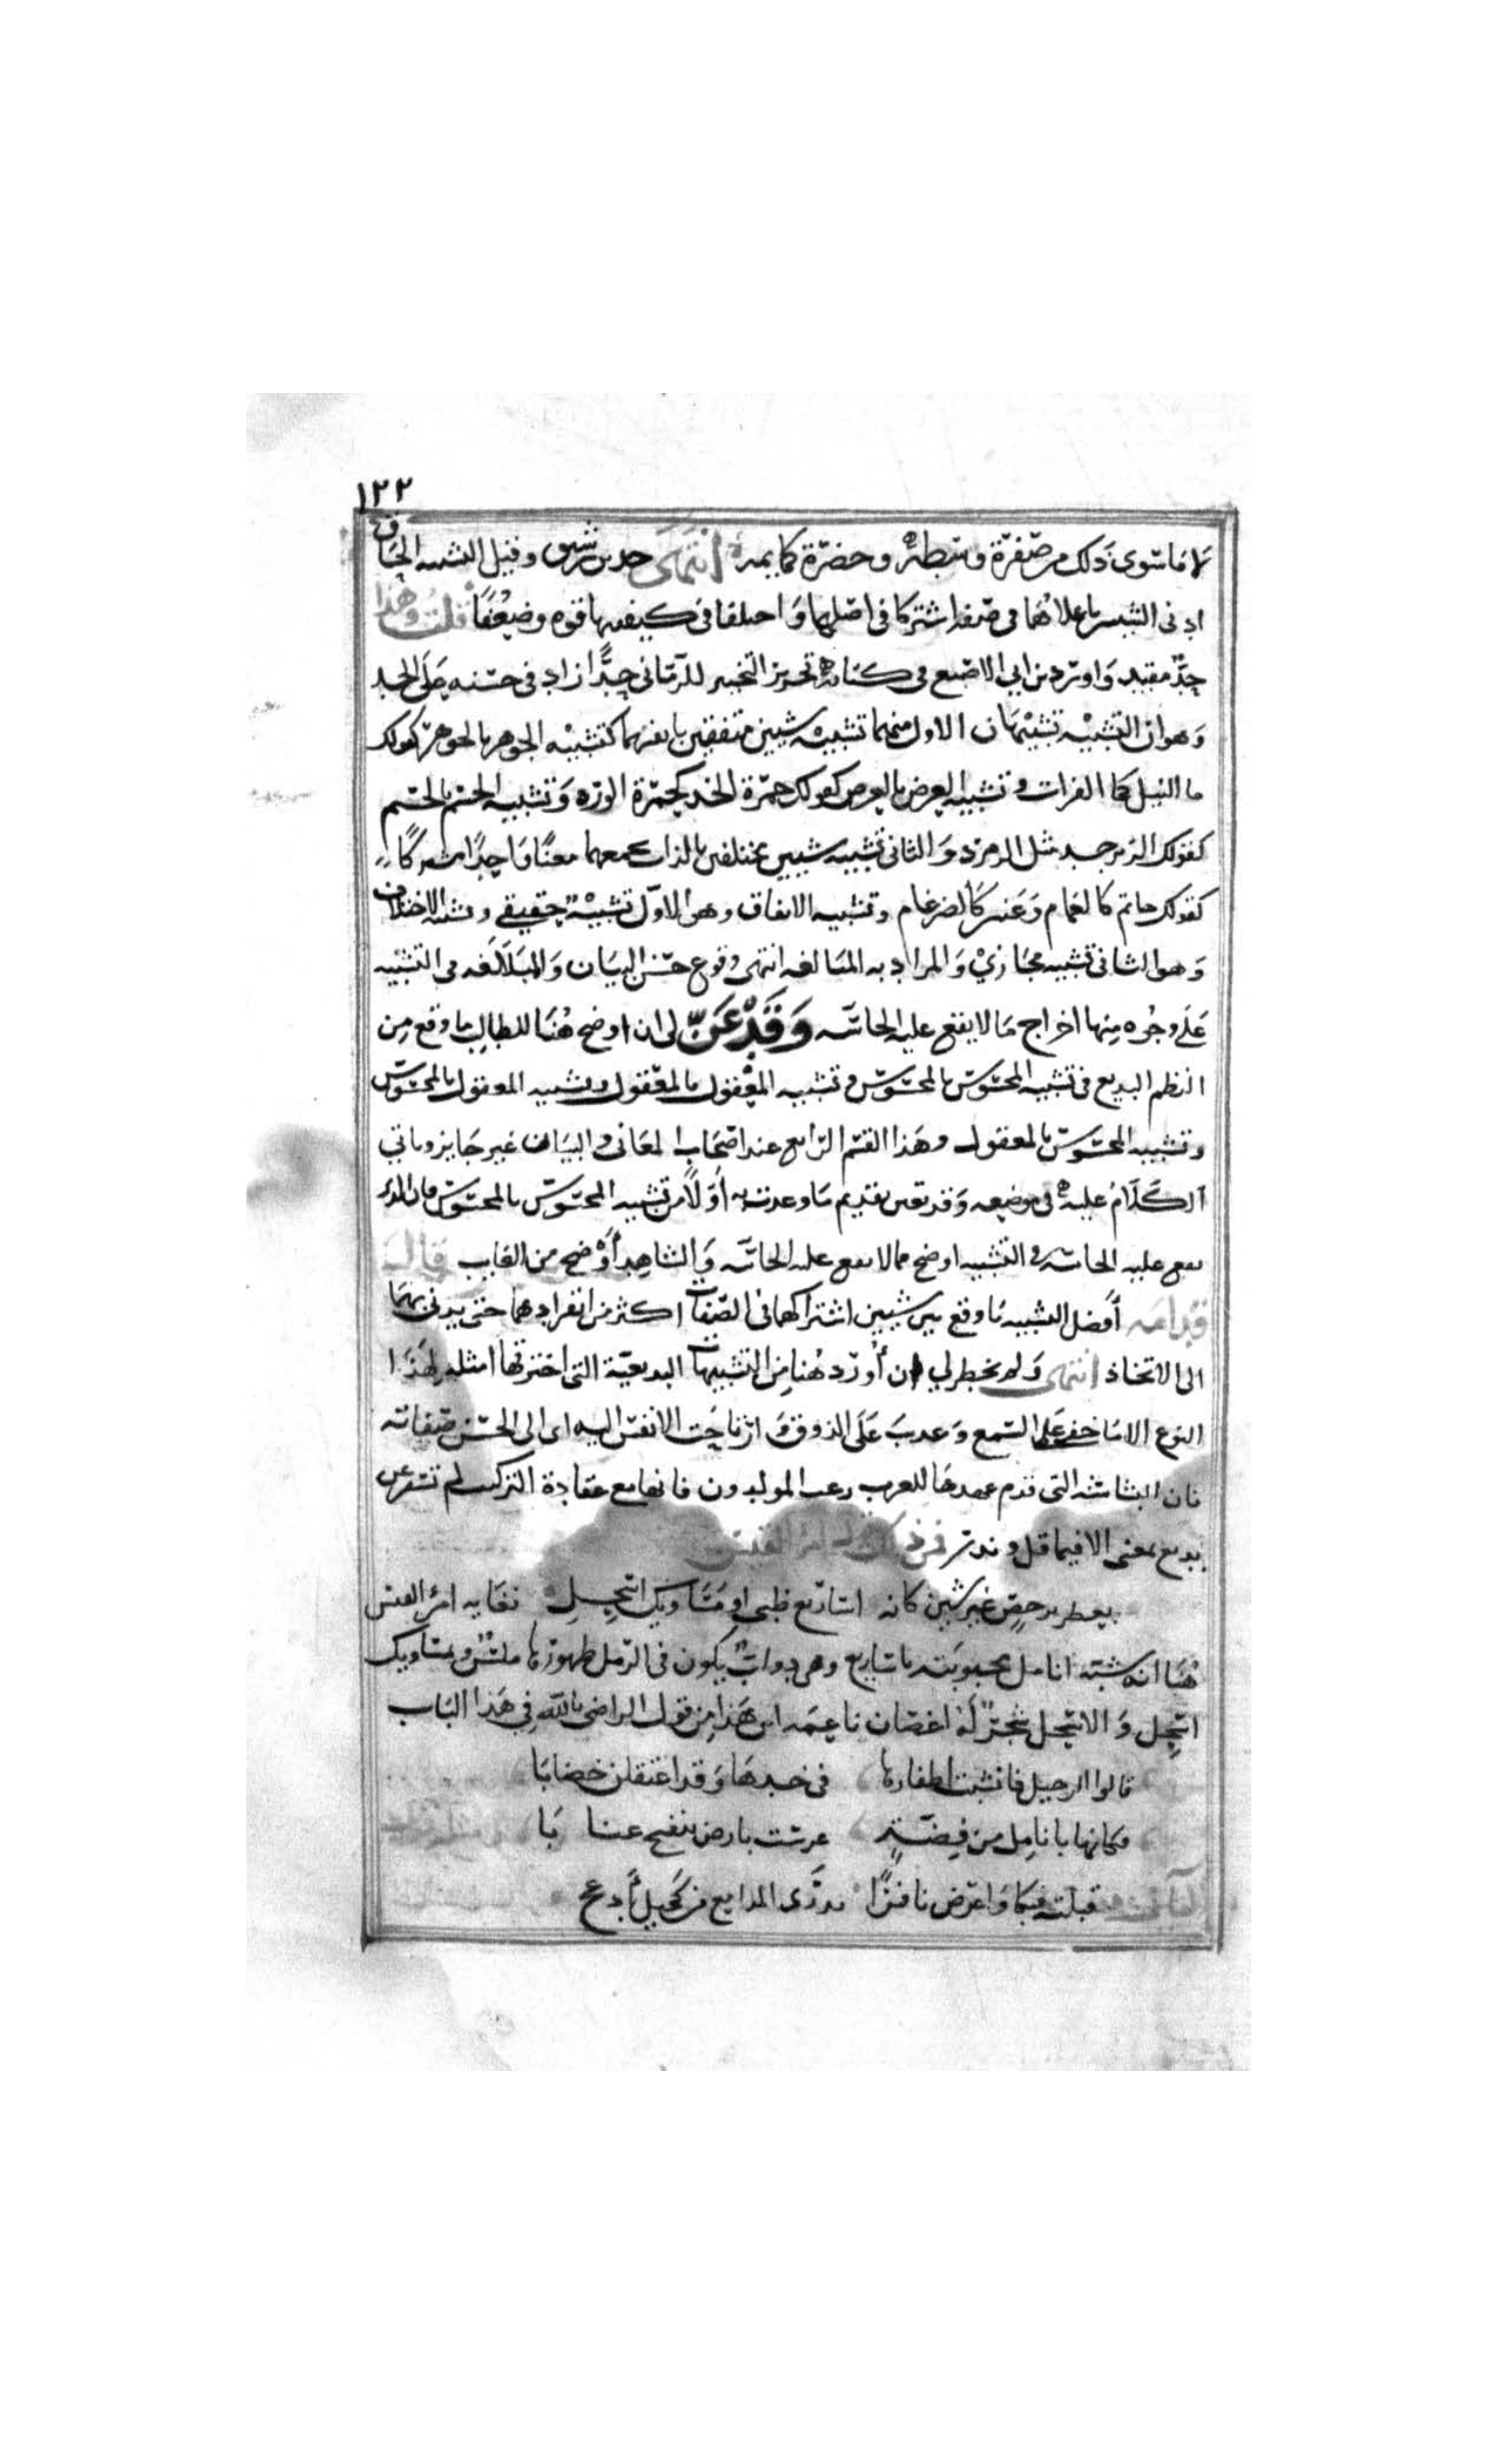 ١٢٢
لا ما سوى ذلك من صفرة وسطه وخضرة كمايمه انتهى حد بن رشيق وقيل التشبيه الحاق
ادنى الشيين باعلاهما في صفة اشتركا في اصلها واختلفا في كيفيتها قوة وضعفا قلت وهذا
حد مفيد واورد بن ابي الاصبع في كتابه تحرير التحبير للرماني حدا زاد في حسنه على الحد
وهو ان التشبيه تشبيهان الاول منهما تشبيه شيين متفقين بانفسهما كتشبيه الجوهر بالجوهر كقولك
ما النيل كما الفرات وتشبيه العرض بالعرض كقولك حمرة الخد كحمرة الورد وتشبيه الجسم بالجسم
كقولك الزبرجد مثل الزمرد والثاني تشبيه شيين مختلفين بالذات يجمعهما معنا واحدا مشتركا
كقولك حاتم كالغمام وعنتر كالضرغام وتشبيه الاتفاق وهو الاول تشبيه حقيقي وتشبيه الاختلاف
وهو الثاني تشبيه مجازي والمراد به المبالغه انتهى وقوع حسن البيان والمبالغه في التشبيه
على وجوه منها اخراج ما لا يقع عليه الحاسه وقد عن لي ان اوضح هنا للطالب ما وقع من
النظم البديع في تشبيه المحسوس بالمحسوس وتشبيه المعقول بالمعقول وتشبيه المعقول بالمحسوس
وتشبيه المحسوس بالمعقول وهذا القسم الرابع عند اصحاب المعاني والبيان غير جايز وياتي
الكلام عليه في موضعه وقد تعين تقديم ما وعدت به اولا من تشبيه المحسوس بالمحسوس فان الذي
تقع عليه الحاسه في التشبيه اوضح مما لا تقع عليه الحاسه والشاهد أوضح من الغايب قال
قدامه أفضل التشبيه ما وقع بين شيين اشتراكهما في الصفات اكثر من انفرادهما حتى يدنى بهما
الى الاتحاد انتهى ولم يخطر لي ان أورد هنا من التشبيهات البديعية التي اخترتها امثله لهذا
النوع الا ما خف على السمع وعذب على الذوق وارتاحت الانفس اليه اى الى الحسن صفاته
فان التي قدم عهدها للعرب رغب المولدون فانها مع عقادة التركيب لم تسفر عن
بديع معنى الا فيما قل وندر فمن ذلك قول امرئ القيس
يعطو برخص غير شثن كانه اساريع ظبي او مساويك اسحل فغايه امرئ القيس
هنا انه شبه انامل محبوبته باساريع وهي دواب يكون في الرمل ظهورها ملس ومساويك
اسحل والاسحل شجر له اغصان ناعمه اين هذا من قول الراضي بالله في هذا الباب
قالوا الرحيل فانشبت اظفارها في خدها وقد اعتقلن خضابا
فكانها بانامل من فضة غرست بارض بنفسج عنابا
قبلته فبكا واعرض نافرا يذرى المدامع من كحيل أدعج